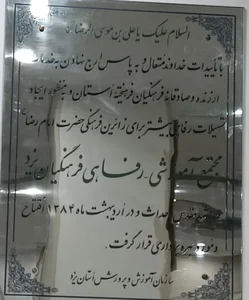 السلام علیک یا علی بن موسی الرضا
با تأییدات خداوند متعال به پاس ارج نهادن به خدمات
ارزنده و صادقانه فرهنگیان فرهیخته استان و بمنظور ایجاد
تسهیلات رفاهی بیشتر برای زائرین فرهنگی حضرت امام رضا
مجتمع آموزشی رفاهی فرهنگیان یزد
احداث و در اردیبهشت ماه ۱۳۸۴ افتتاح
و مورد بهره برداری قرار گرفت.
سازمان آموزش و پرورش استان یزد